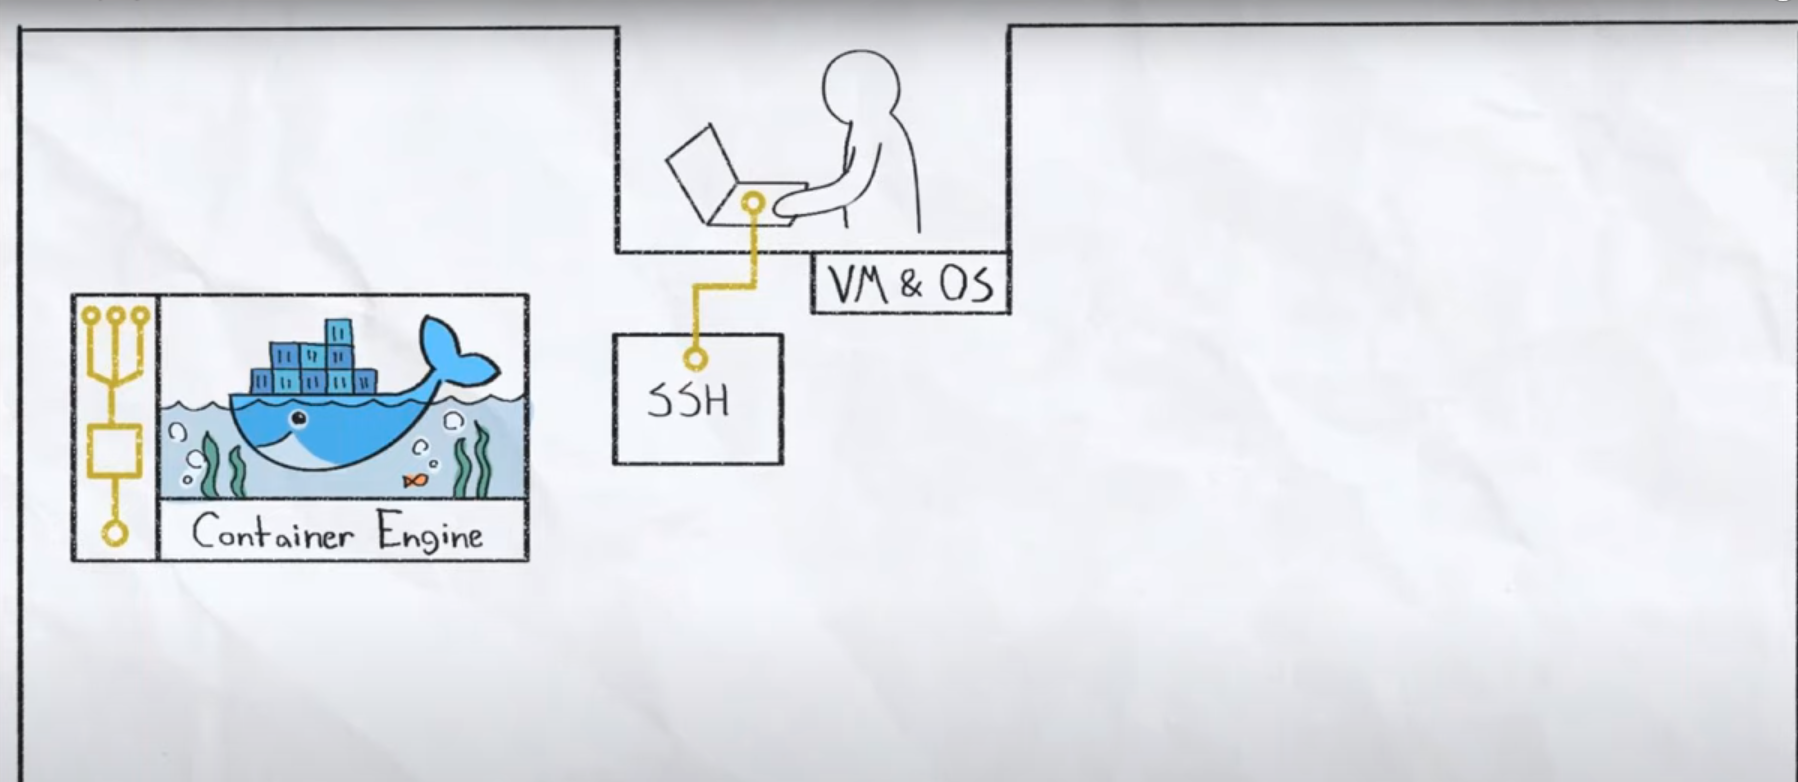 VM & OS
SSH
Container Engine